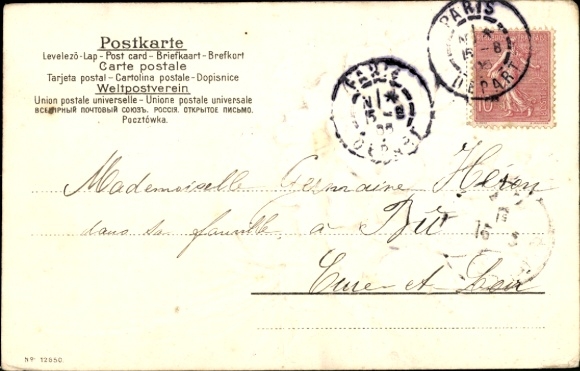 Postkarte
Levelező-Lap - Post card - Briefkaart - Brefkort
Carte postale
Tarjeta postal - Cartolina postale - Dopisnice
Weltpostverein
Union postale universelle - Unione postale universale
ВСЕМІРНЫЙ ПОЧТОВЫЙ СОЮЗЪ. РОССІЯ. ОТКРЫТОЕ ПИСЬМО.
Pocztówka.
PARIS
15 - 8
DEPART
PARIS
15 - 8
10
Mademoiselle Germaine Héron
dans sa famille, à Bû
Eure et Loir
No. 12650.